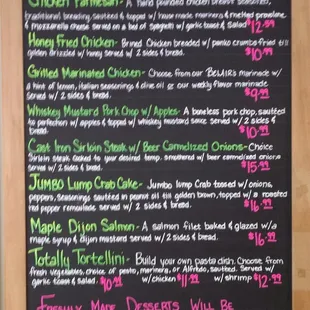 Chicken Parmesan - A hand pounded chicken breast seasoned,
traditional breading, sautéed & topped w/ house made marinara & melted provolone
& mozzarella cheese served on a bed of spaghetti w/ garlic toast & salad $12.99
Honey Fried Chicken - Brined Chicken breaded w/ panko crumbs fried till
golden drizzled w/ honey served w/ 2 sides & bread. $10.99
Grilled Marinated Chicken - Choose from our marinade w/
a hint of lemon, italian seasonings & olive oil or our weekly flavor marinade
served w/ 2 sides & bread. $9.99
Whiskey Mustard Pork Chop w/ Apples - A boneless pork chop, sautéed
to perfection w/ apples & topped w/ whiskey mustard sauce served w/ 2 sides &
bread. $10.99
Cast Iron Sirloin Steak w/ Beer Carmelized Onions - Choice
Sirloin steak cooked to your desired temp. smothered w/ beer carmelized onions
served w/ 2 sides & bread. $15.99
Jumbo Lump Crab Cake - Jumbo lump Crab tossed w/ onions,
peppers, seasonings sautéed in peanut oil till golden brown, topped w/ a roasted
red pepper remoulade served w/ 2 sides & bread. $16.99
Maple Dijon Salmon - A salmon filet baked & glazed w/ a
maple syrup & dijon mustard served w/ 2 sides & bread. $16.99
Totally Tortellini - Build your own pasta dish. Choose from
fresh vegetables, choice of pesto, marinara, or Alfredo, sautéed. Served w/
garlic toast & salad. $10.99 w/ chicken $11.99 w/ shrimp $12.99
Freshly Made Desserts Will Be